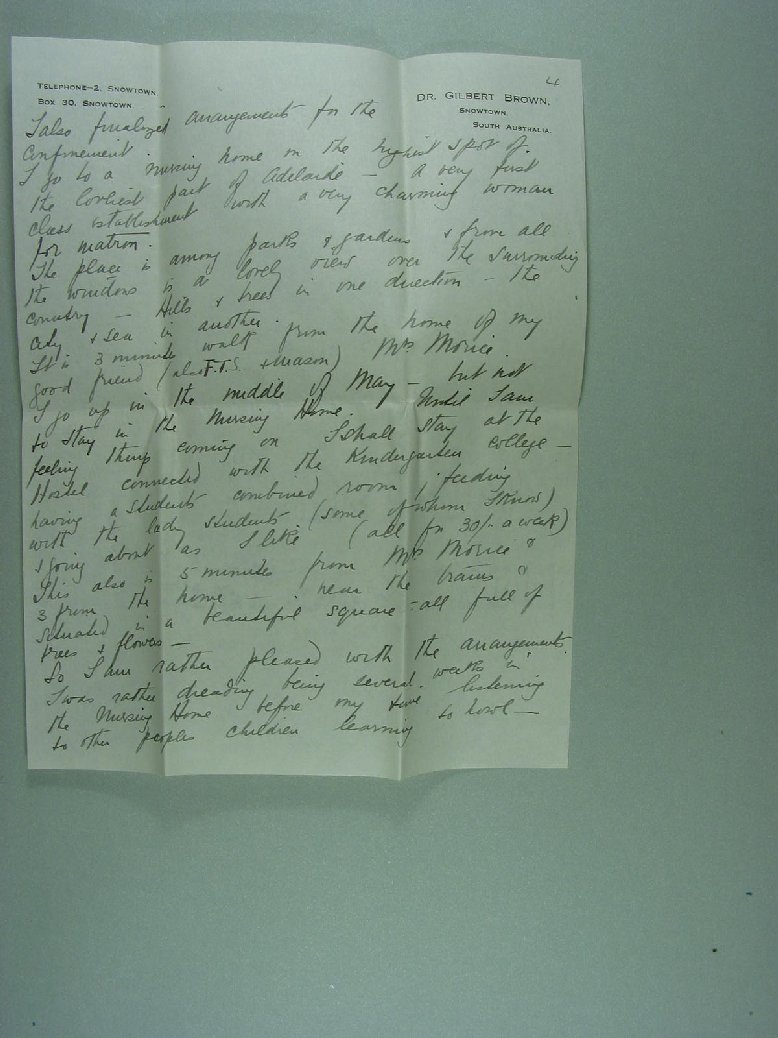 TELEPHONE—2, SNOWTOWN
BOX 30, SNOWTOWN
DR. GILBERT BROWN,
SNOWTOWN,
SOUTH AUSTRALIA.
I also finalized arrangements for the
confinement.
I go to a nursing home on the highest spot of
the lovliest part of Adelaide — a very first
class establishment with a very charming woman
for matron.
The place is among parks & gardens & from all
the windows is a lovely view over the surrounding
country — Hills & trees in one direction — the
city & sea in another.
It is 3 minutes walk from the home of my
good friend (also F.T.S. & mason) Mrs Morice.
I go up in the middle of May — but not
to stay in the Nursing Home. Until I am
feeling things coming on I shall stay at the
Hostel connected with the Kindergarten college —
having a students combined room, feeding
with the lady students (some of whom I know)
& going about as I like. (all for 30/- a week)
This also is 5 minutes from Mrs Morice &
3 from the home — near the trams &
situated in a beautiful square - all full of
trees & flowers —
So I am rather pleased with the arrangements.
I was rather dreading being several weeks in
the Nursing Home before my time listening
to other peoples children learning to howl —